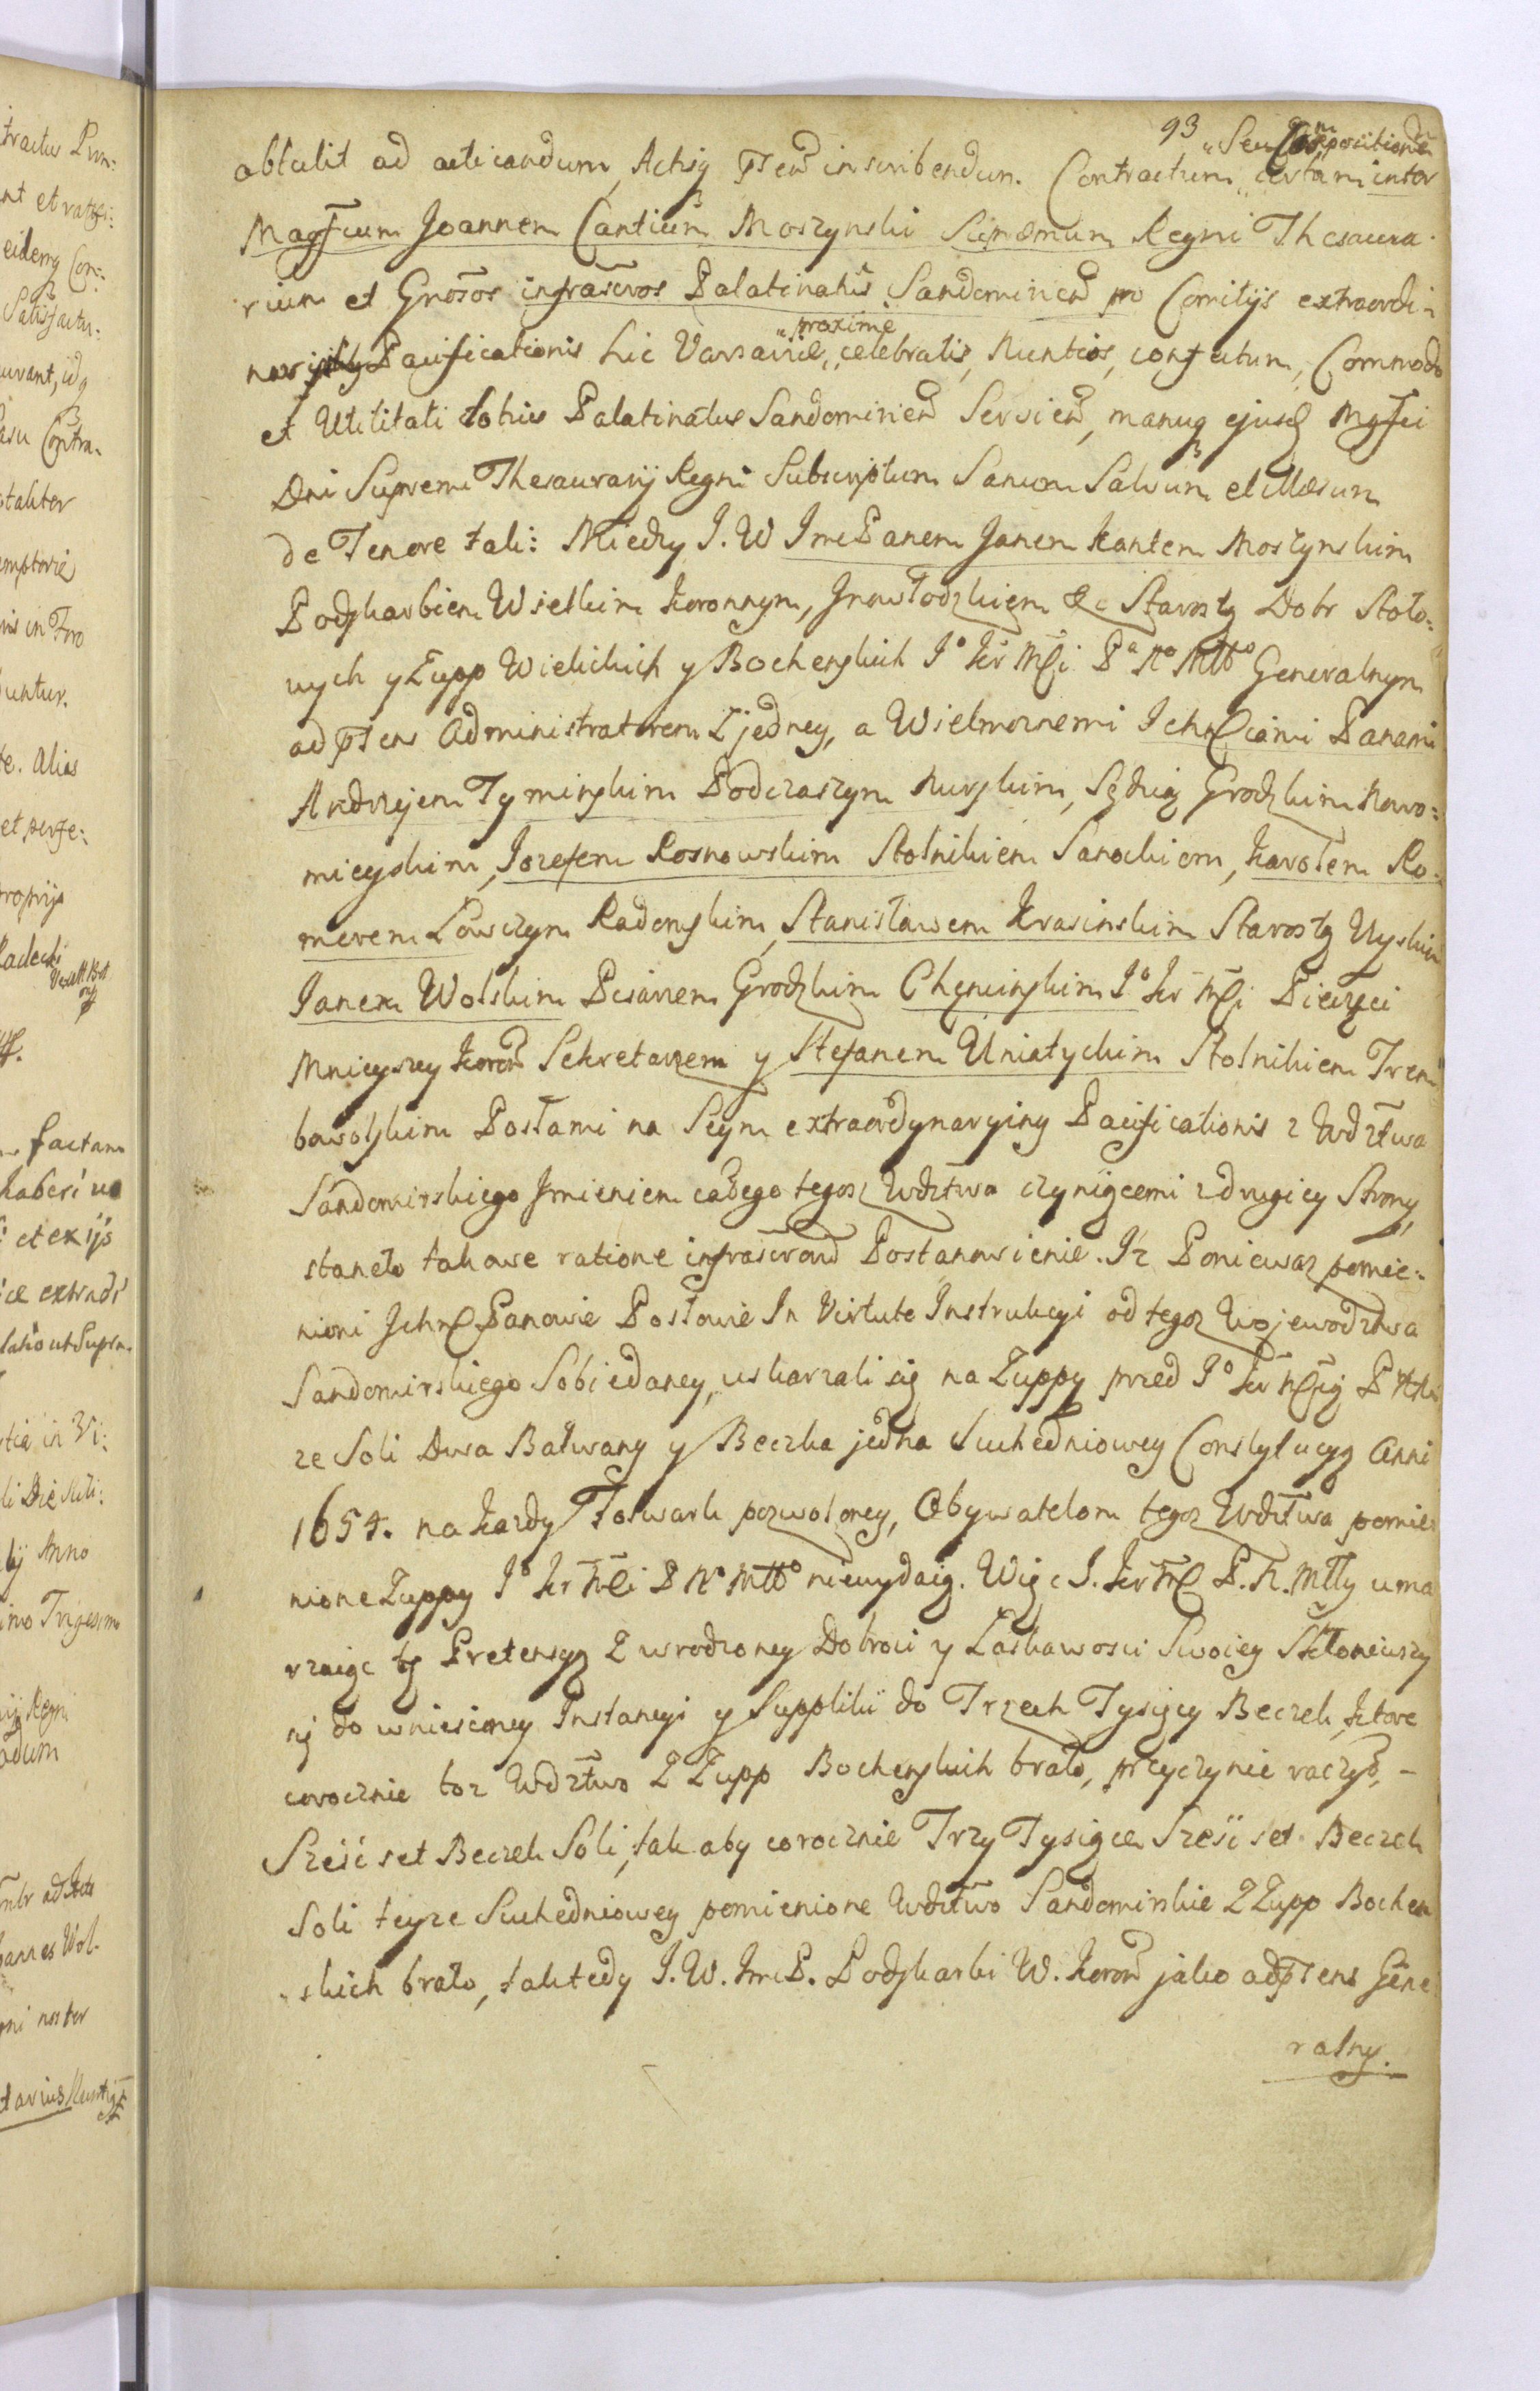 tractus Pun:
nt et ratifi:
eidemq Con:
Satisfactu:
urant, idq
asu Contra-
taliter
emptorie
is in Foro
untur.
te. Alias
et perfe:
proprijs
Radecki
factam
haberi
et ex ijs
extradi
ut Supra.
in Vi:
li Die Juli:
lij Anno
imo Trigesimo
ij Regni
adum
ad Acta
annes Wol-
ni noster
tarius
93 "Seu Compositionem
obtulit ad acticandum, Actisq pñtẽ inscribendum. Contractum " certam inter
Magfcum Joannem Cantium Moszynski Supremum Regni Thesaura-
rium et Gnosos infrascros Palatinatus Sandomirien pro Comitijs extraordi-
narijs Pacificationis hic Varsaviæ, "proxime celebratis, Nuntios, confectum, Commodo
et Utilitati totius Palatinatus Sandomirien Servien, manuq ejusd Mgfci
Dni Supremi Thesaurarij Regni Subscriptum Sanum Salvum et illæsum
de Tenore tali: Miedzy J. W Jme Panem Janem Kantem Moszynskim
Podskarbiem Wielkim Koronnym, Jnowłodzkiem &c Starostą Dobr Stoło-
wych y Zupp Wielickich y Bochenskich Jº Kr Mci Pª Nº Mttº Generalnym
ad pñtens Administratorem z jedney, a Wielmoznemi Jchmciami Panami
Andrzejem Tyminskim Podczaszym Nurskim, Sędzią Grodzkim Nowo-
mieyskim, Jozefem Rosnowskim Stolnikiem Sanockiem, Karolem Ro-
merem Łowczym Radomskim, Stanisławem Krasinskim Starostą Uyskim
Janem Wolskim Pisarzem Grodzkim Chęncinskim Jº Kr Mci Pieczęci
Mnieyszey Koron Sekretarzem y Stefanem Uniatyckim Stolnikiem Trem
bowolskim Posłami na Seym extraordynaryiny Pacificationis z Wdztwa
Sandomirskiego Jmieniem całego tegoz Wdztwa czyniącemi z drugiey Strony,
staneło takowe ratione infrascrorum Postanowienie. Iz Poniewaz pomie-
nieni Jchmc Panowie Posłowie In Virtute Instrukcyi od tegoz Wojewodztwa
Sandomirskiego Sobie daney, uskarzali się na Zuppy przed Jº Kr Mcią P N M
ze Soli Dwa Bałwany y Beczka jedna Suchedniowey Constytucyą Anni
1654. na Kazdy Folwark pozwoloney, Obywatelom tegoz Wdztwa pomie-
nione Zuppy Jº Kr Mci P Nº Mttº niewydaią. Więc J. Kr Mc P. N. Mtty uma
rzaiąc tę Pretensyą z wrodzoney Dobroci y Łaskawosci Swoiey Skłoniwszy
się do wniesioney Instancyi y Suppliki do Trzech Tysięcy Beczek, ktore
corocznie toz Wdztwo z Zupp Bochenskich brało, przyczynic raczył, -
Szesc set Beczek Soli, tak aby corocznie Trzy Tysiące Szesc set Beczek
Soli teyze Suchedniowey pomienione Wdztwo Sandomirskie z Zupp Bochen
skich brało, tak tedy J. W. Jme P. Podskarbi W. Koron jako ad pñtens Gene
ralny.